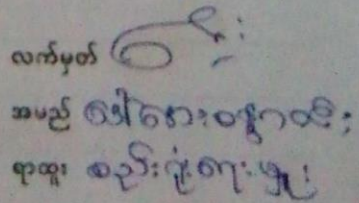 လက်မှတ်
အမည် ဒေါ်အေးစန္ဒာထိုး
ရာထူး စည်းရုံးရေးမှူး